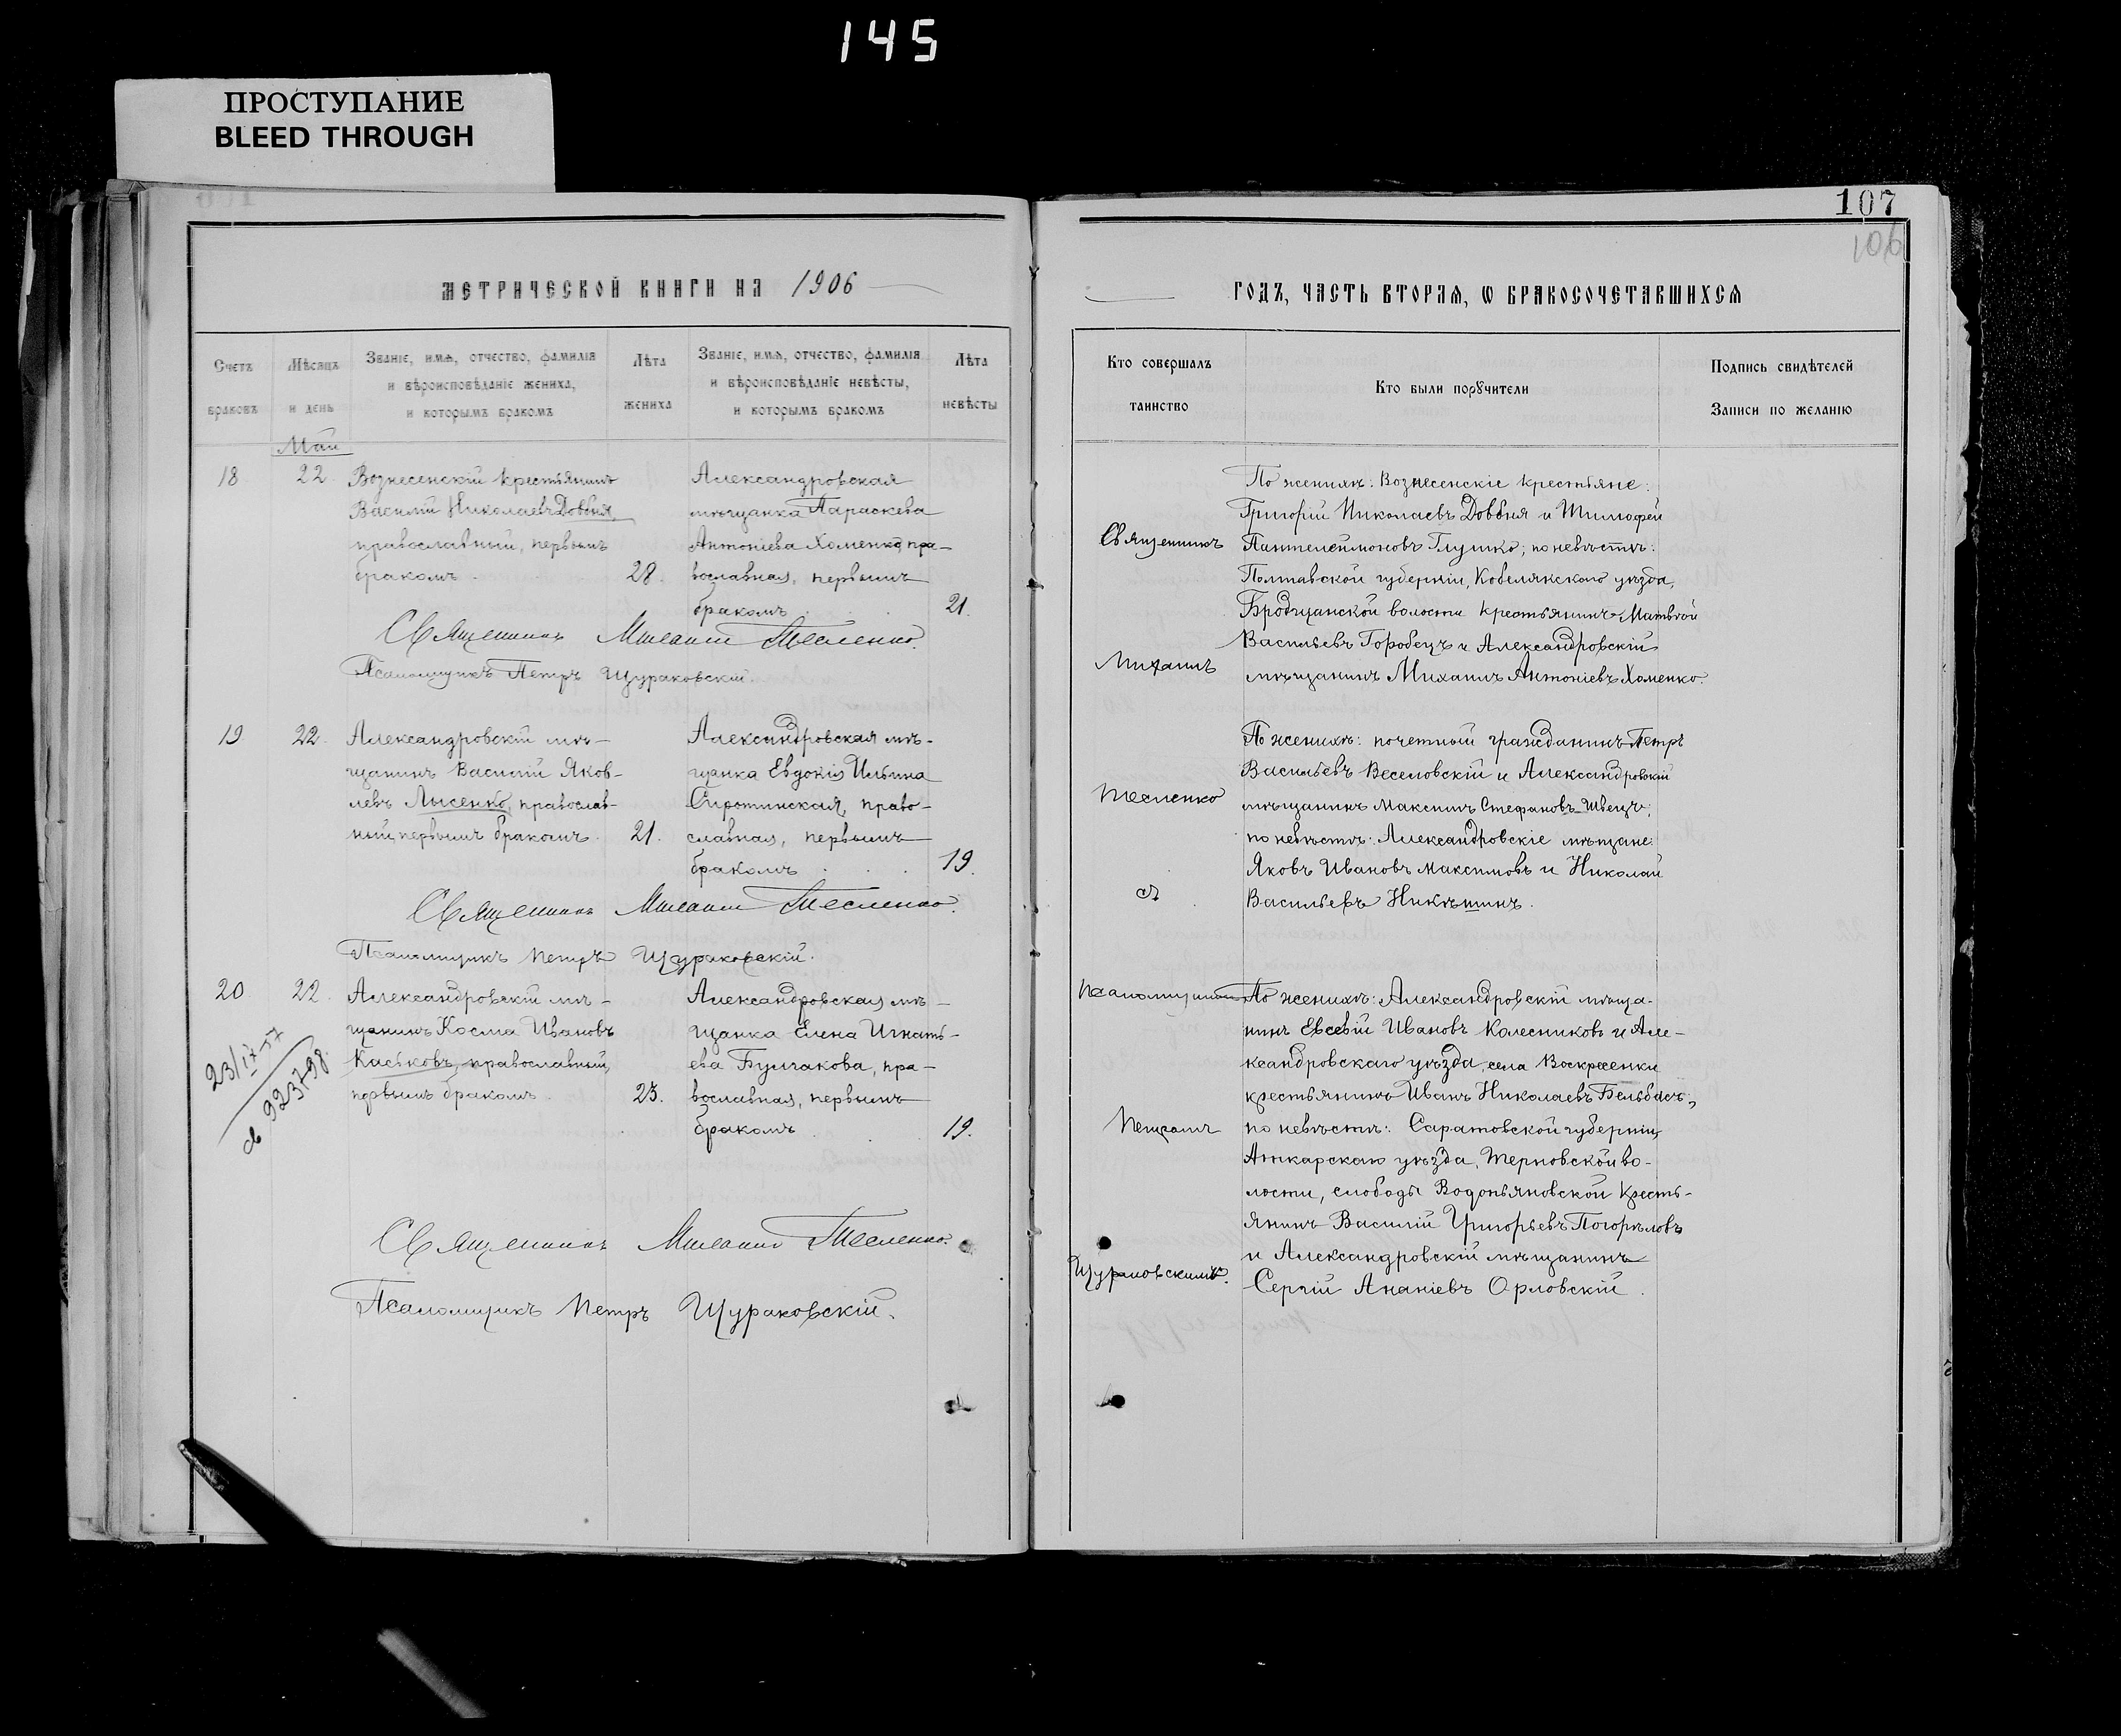 145
ПРОСТУПАНИЕ
BLEED THROUGH
107
106
МЕТРИЧЕСКОЙ КНИГИ НА 1906
Счетъ браковъ
Мѣсяцъ и день
Званіе, имя, отчество, фамилія
и вѣроисповѣданіе жениха,
и которымъ бракомъ
Лѣта жениха
Званіе, имя, отчество, фамилія
и вѣроисповѣданіе невѣсты,
и которымъ бракомъ
Лѣта невѣсты
Май
18
22
Вознесенскій крестьянинъ
Василій Николаевъ Довбня,
православный, первымъ
бракомъ.
28.
Александровская
мѣщанка Параскева
Антоніева Хоменко, пра-
вославная, первымъ
бракомъ . . .
21.
Священникъ Михаилъ Тесленко.
Псаломщикъ Петръ Щураковскій.
19
22.
Александровскій мѣ-
щанинъ Василій Яков-
левъ Лысенко, православ-
ный, первымъ бракомъ.
21.
Александровская мѣ-
щанка Евдокія Ильина
Сиротинская, право-
славная, первымъ
бракомъ . . .
19.
Священникъ Михаилъ Тесленко.
Псаломщикъ Петръ Щураковскій.
20
22.
23/IX-57
св 923798
Александровскій мѣ-
щанинъ Косма Ивановъ
Каськовъ, православный,
первымъ бракомъ.
23.
Александровская мѣ-
щанка Елена Игнать-
ева Булгакова, пра-
вославная, первымъ
бракомъ . . .
19.
Священникъ Михаилъ Тесленко.
Псаломщикъ Петръ Щураковскій.
ГОДЪ, ЧАСТЬ ВТОРАЯ, Ѡ БРАКОСОЧЕТАВШИХСЯ
Кто совершалъ таинство
Кто были порꙋчители
Подпись свидѣтелей
Записи по желанію
Священникъ
Михаилъ
Тесленко
съ
Псаломщикомъ
Петромъ
Щураковскимъ.
По женихѣ: Вознесенскіе крестьяне:
Григорій Николаевъ Довбня и Тимофей
Пантелеимоновъ Глушко; по невѣстѣ:
Полтавской губерніи, Кобелякскаго уѣзда,
Бродщанской волости крестьянинъ Матвѣй
Васильевъ Горобецъ и Александровскій
мѣщанинъ Михаилъ Антоніевъ Хоменко.
По женихѣ: почетный гражданинъ Петръ
Васильевъ Веселовскій и Александровскій
мѣщанинъ Максимъ Стефановъ Швецъ;
по невѣстѣ: Александровскіе мѣщане:
Яковъ Ивановъ Максимовъ и Николай
Васильевъ Никѣшинъ.
По женихѣ: Александровскій мѣща-
нинъ Евсевій Ивановъ Колесниковъ и Але-
ксандровскаго уѣзда, села Воскресенки
крестьянинъ Иванъ Николаевъ Бельбасъ;
по невѣстѣ: Саратовской губерніи,
Аткарскаго уѣзда, Терновской во-
лости, слободы Водопьяновской кресть-
янинъ Василій Григорьевъ Погорѣловъ
и Александровскій мѣщанинъ
Сергій Ананіевъ Орловскій.